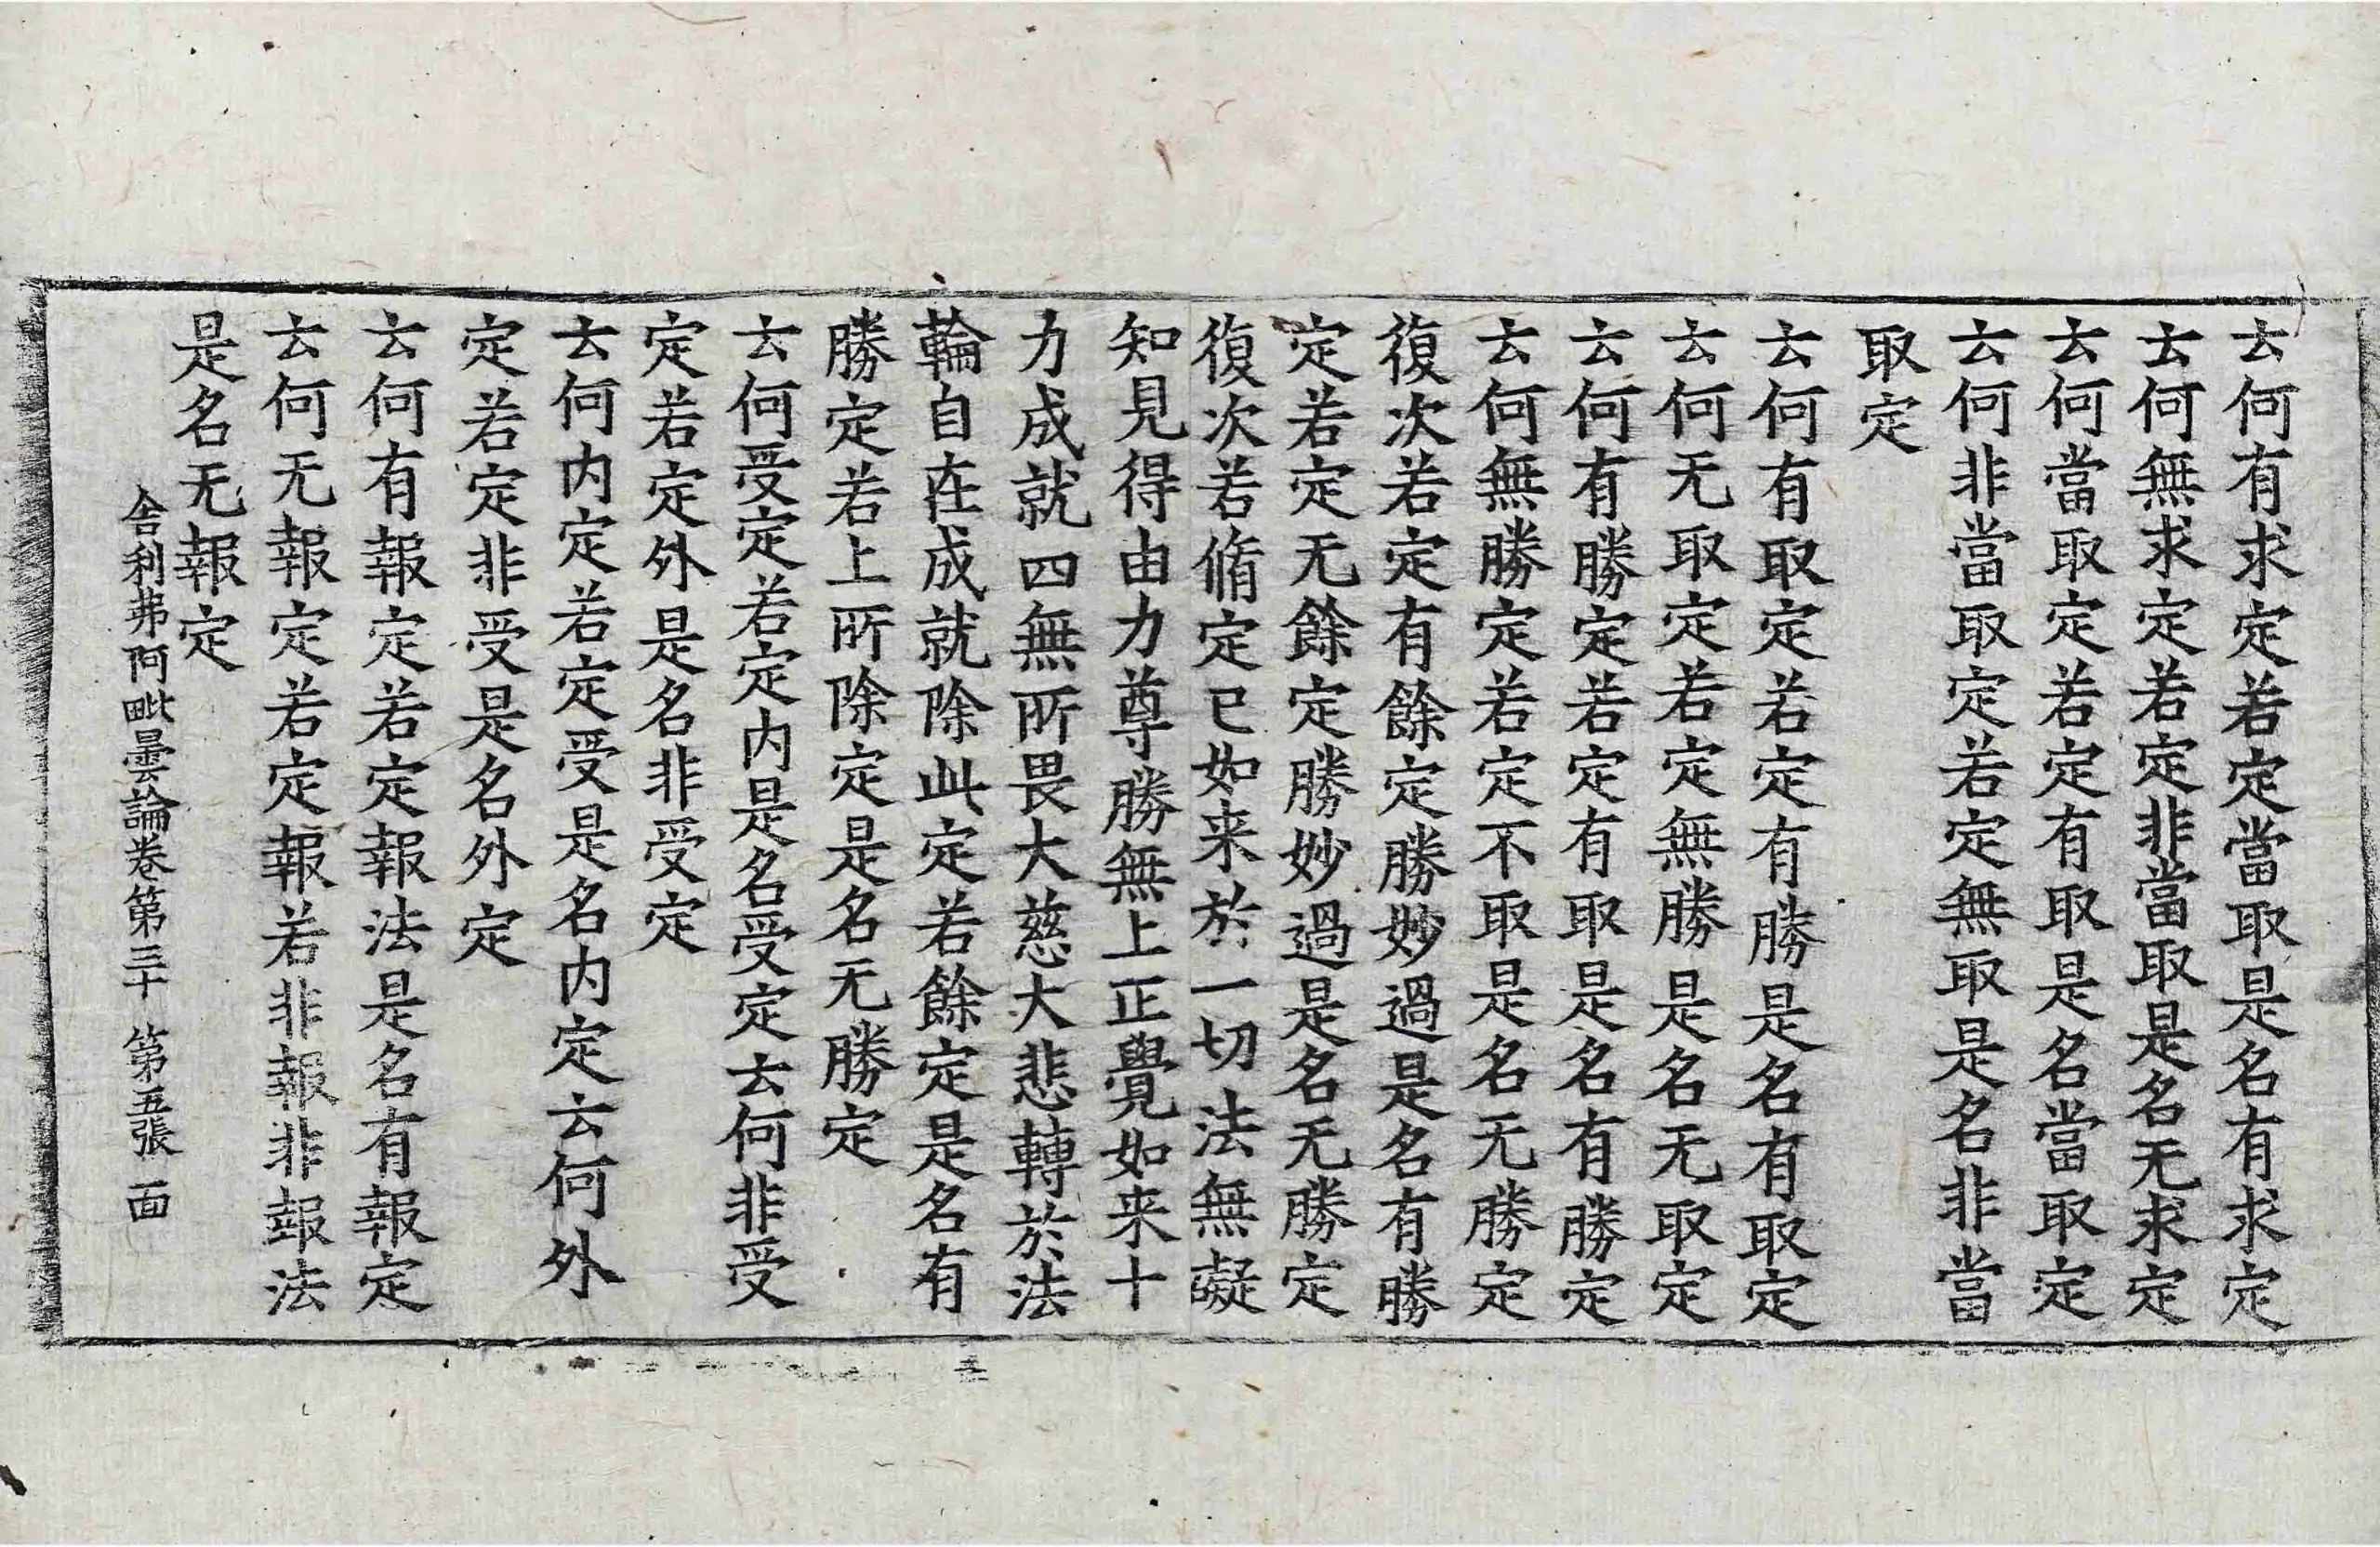 云何有求定若定當取是名有求定
云何無求定若定非當取是名无求定
云何當取定若定有取是名當取定
云何非當取定若定無取是名非當
取定
云何有取定若定有勝是名有取定
云何无取定若定無勝是名无取定
云何有勝定若定有取是名有勝定
云何無勝定若定不取是名无勝定
復次若定有餘定勝妙過是名有勝
定若定无餘定勝妙過是名无勝定
復次若脩定已如来於一切法無礙
知見得由力尊勝無上正覺如来十
力成就四無所畏大慈大悲轉於法
輪自在成就除此定若餘定是名有
勝定若上所除定是名无勝定
云何受定若定内是名受定云何非受
定若定外是名非受定
云何内定若定受是名内定云何外
定若定非受是名外定
云何有報定若定報法是名有報定
云何无報定若定報若非報非報法
是名无報定
舍利弗阿毗曇論卷第三十 第五張 面